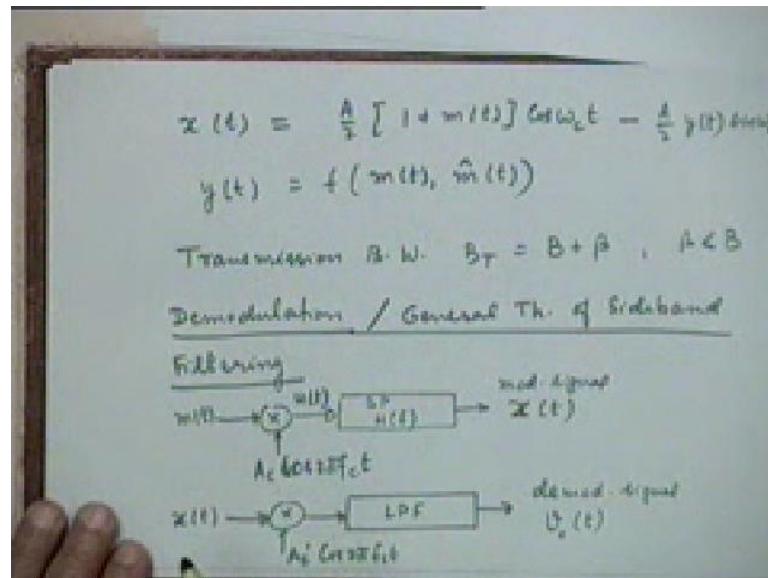 x(t) = A/2 [1 + m(t)] Cos ω_c t − A/2 y(t) Sin ω
y(t) = f( m(t), m̂(t))
Transmission B.W. B_T = B + β , β < B
Demodulation / General Th. of Sideband
Filtering
m(t) × u(t) H(f) mod. signal x(t)
A_c Cos 2πf_c t
x(t) × LPF demod. signal v_o(t)
A_c' Cos 2πf_c t